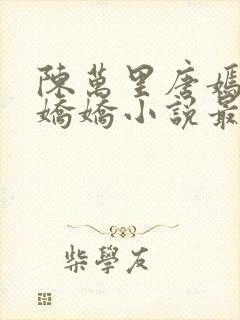 陳萬里唐嫣
嬌嬌小說最
柴學友